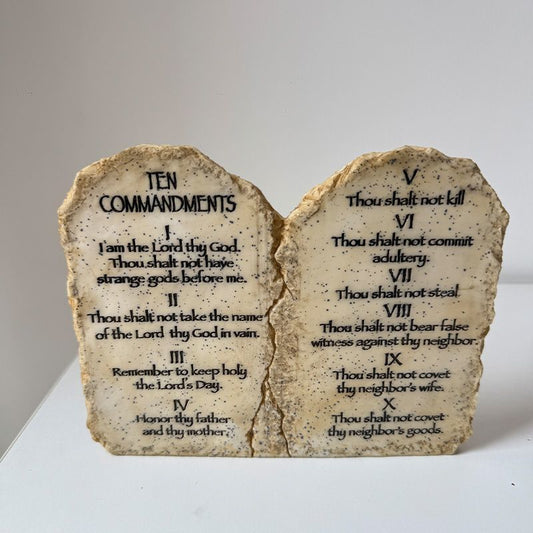 TEN
COMMANDMENTS
I
I am the Lord thy God.
Thou shalt not have
strange gods before me.
II
Thou shalt not take the name
of the Lord thy God in vain.
III
Remember to keep holy
the Lord's Day.
IV
Honor thy father
and thy mother.
V
Thou shalt not kill
VI
Thou shalt not commit
adultery.
VII
Thou shalt not steal.
VIII
Thou shalt not bear false
witness against thy neighbor.
IX
Thou shalt not covet
thy neighbor's wife.
X
Thou shalt not covet
thy neighbor's goods.